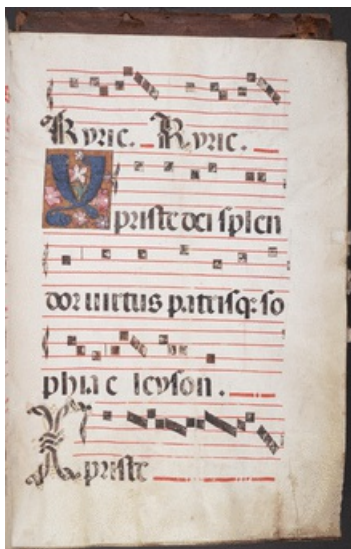 Kyrie. Kyrie.
Xpriste dei splen
dor uirtus patrisq; so
phia e leyson.
Xpriste